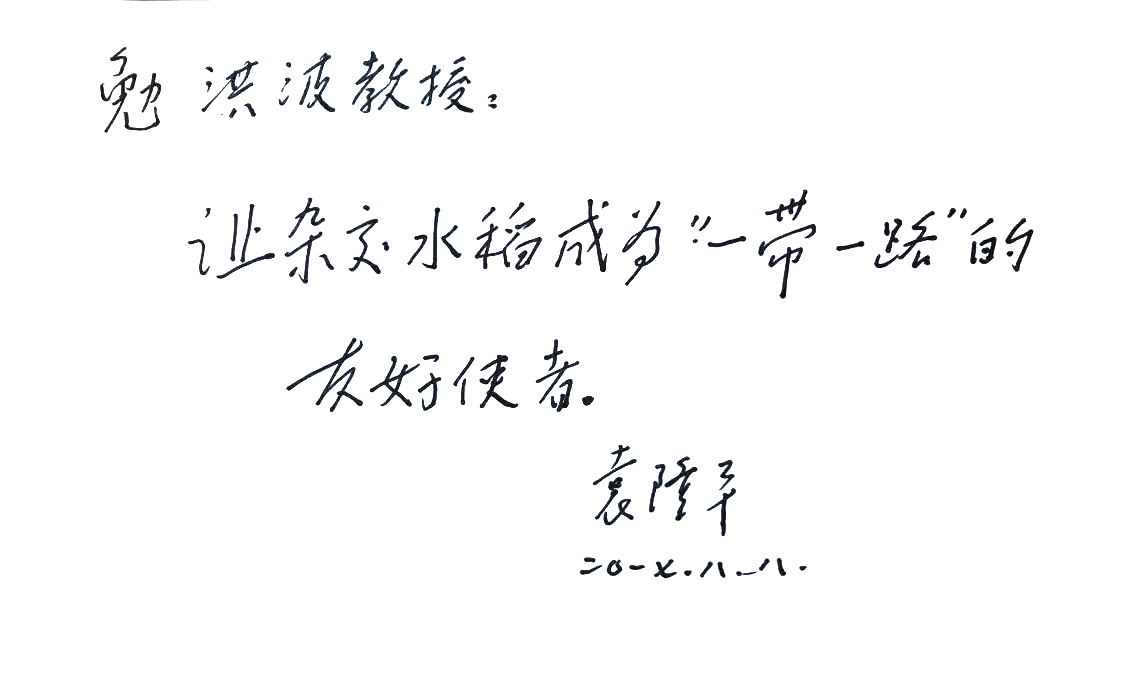 勉洪波教授：
让杂交水稻成为“一带一路”的
友好使者。
袁隆平
二0一七.八.八.